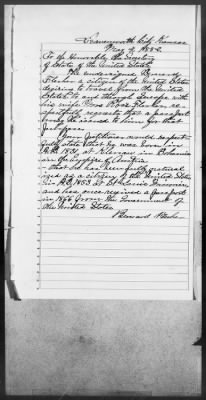 Leavenworth City Kansas
May 4, 188
To the Honorable the Secretary
of State of the United States
The undersigned Bernard
Flesher a citizen of the United States
desiring to travel from the United
States to and through Europe with
his wife Rosa Flesher, re-
spectfully requests that a passport
may be issued to him for that
purpose.
Your petitioner would respect-
fully state that he was born in
A.D. 1831, at in Bohemia
in the Empire of Austria.
That he has been fully natural-
ized as a citizen of the United States
in A.D. 1853 at St Louis Missouri
and has once received a passport
in 1866 from the Government of
the United States
Bernard